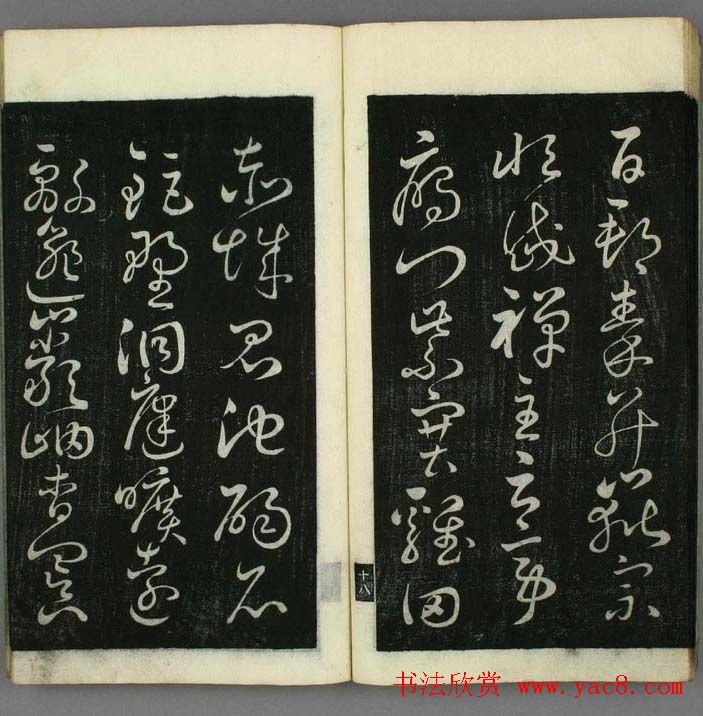 百郡秦并嶽宗
恒岱禪主云亭
雁門紫塞雞田
十八
赤城昆池碣石
鉅野洞庭曠遠
緜邈巖岫杳冥
书法欣赏 www.yac8.com